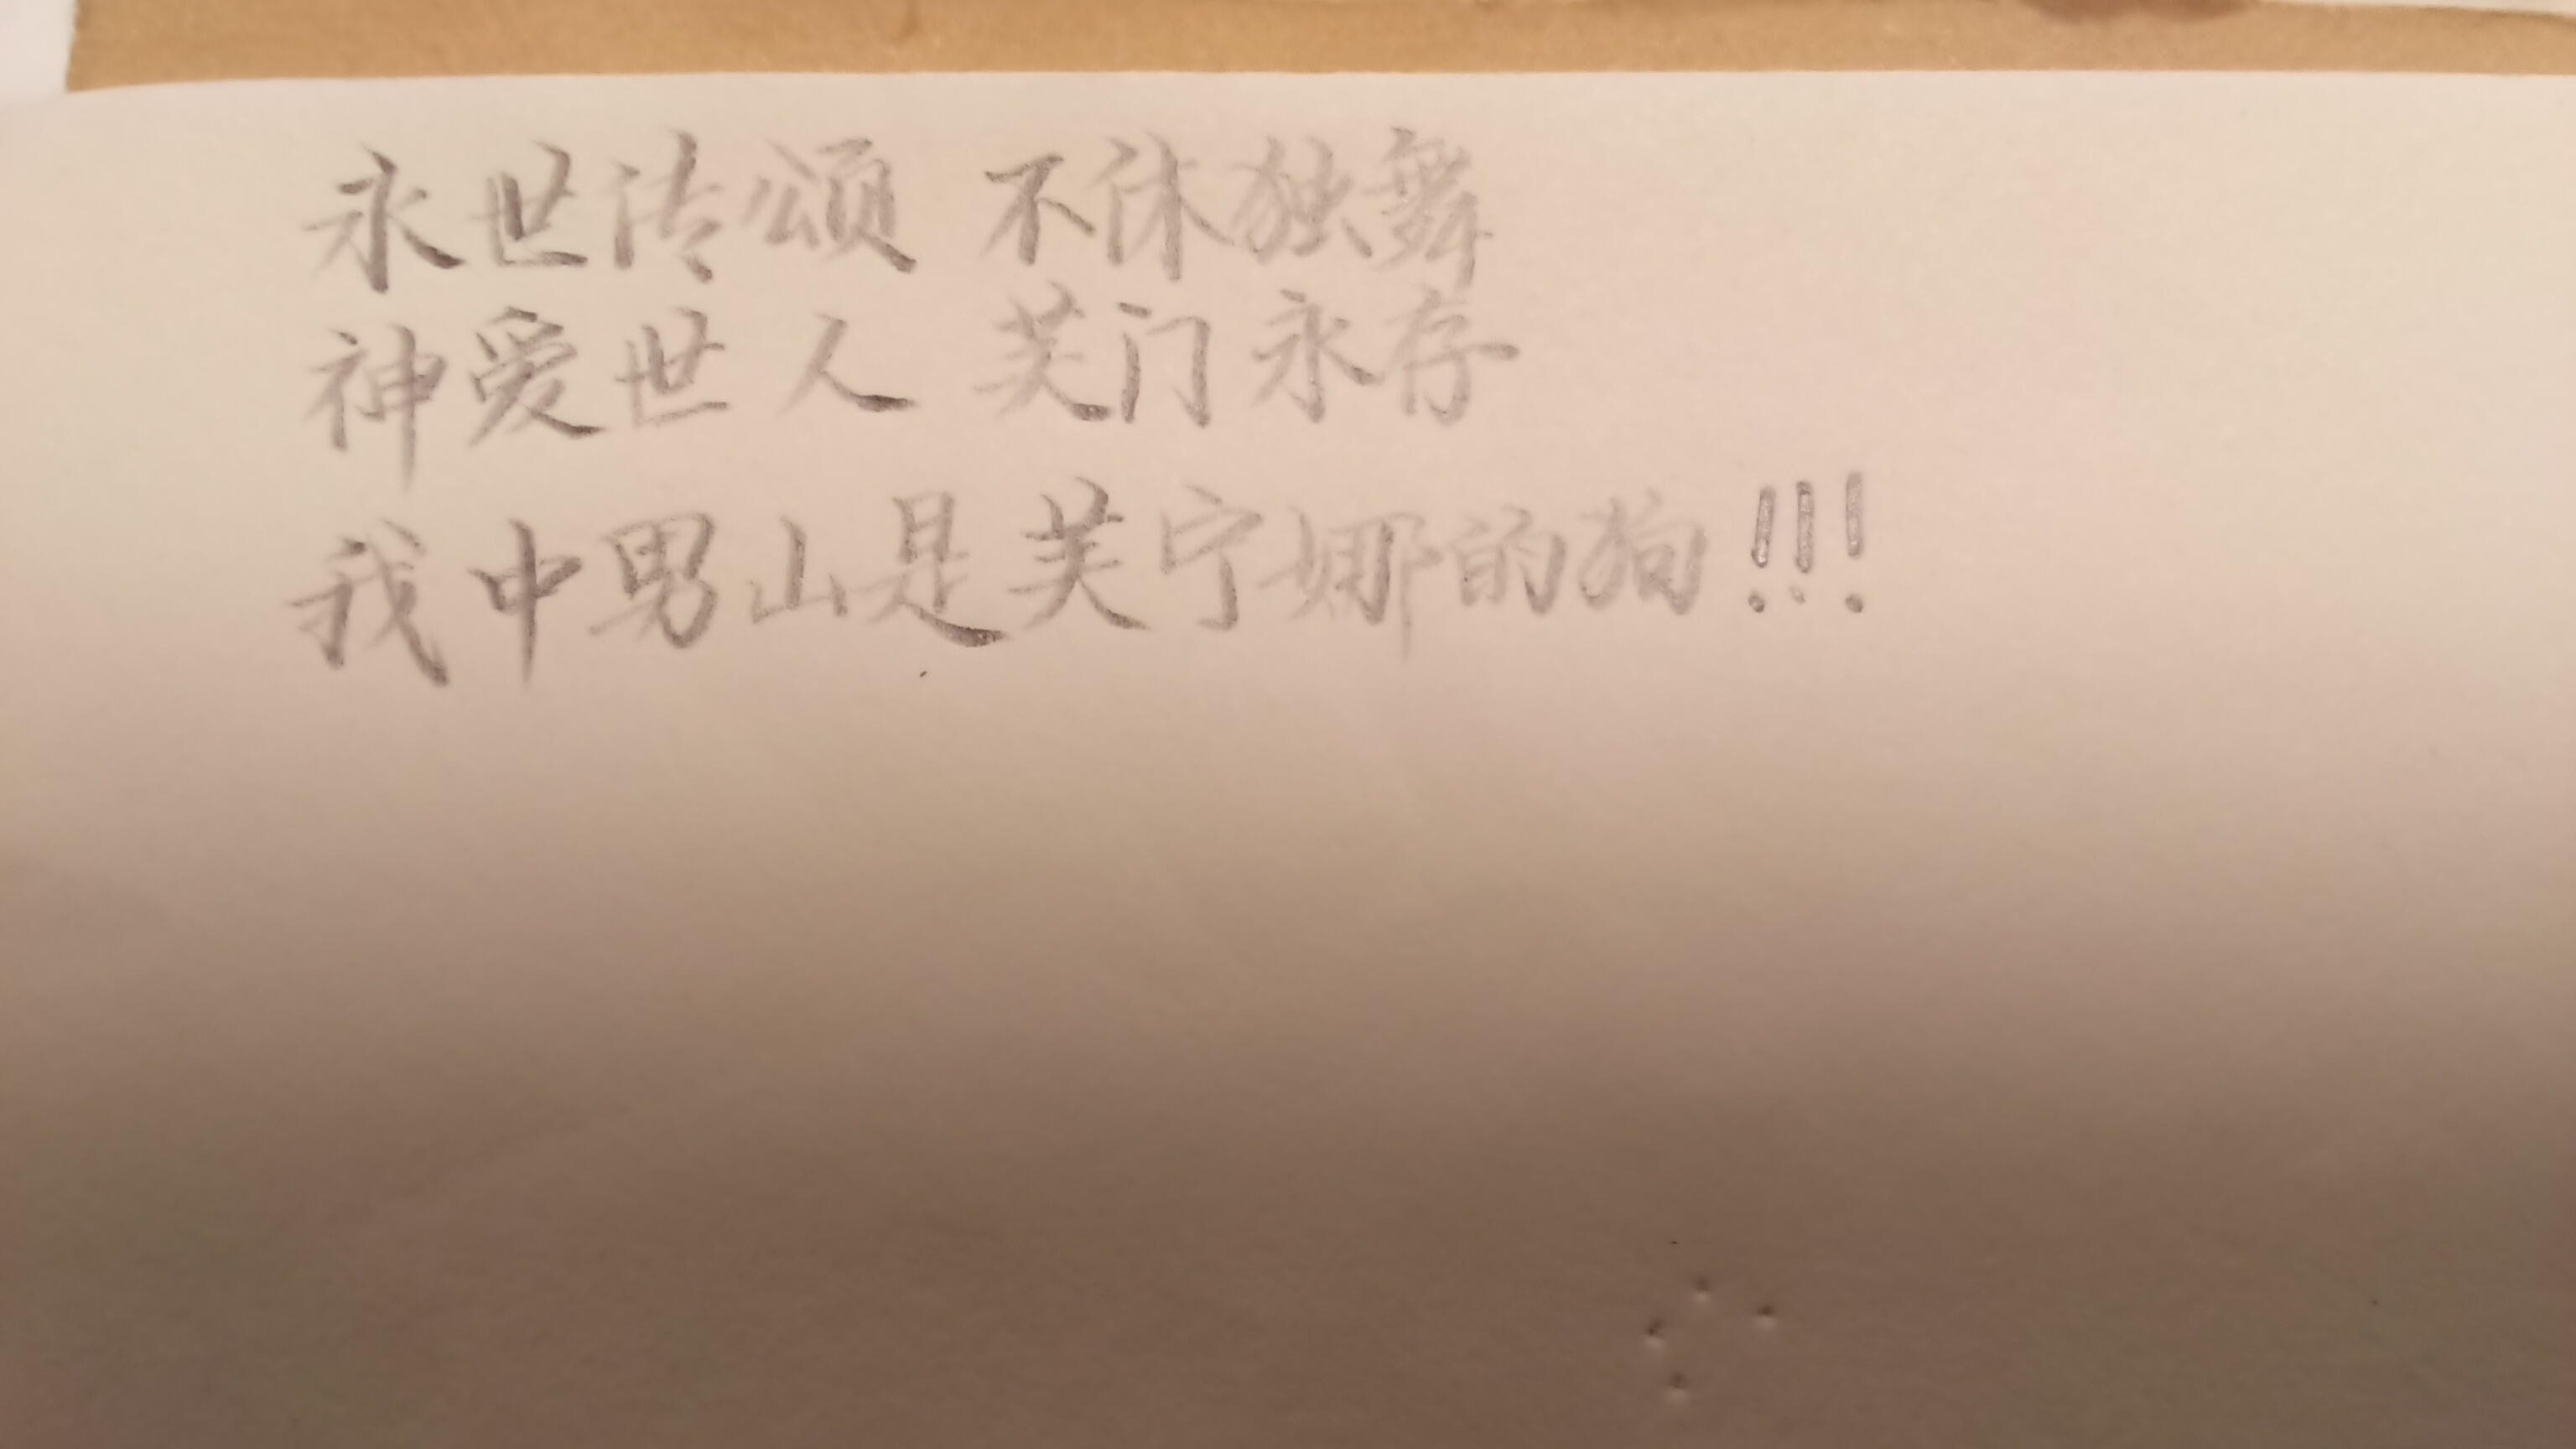 永世传颂 不休独舞
神爱世人 芙门永存
我中男山是芙宁娜的狗!!!